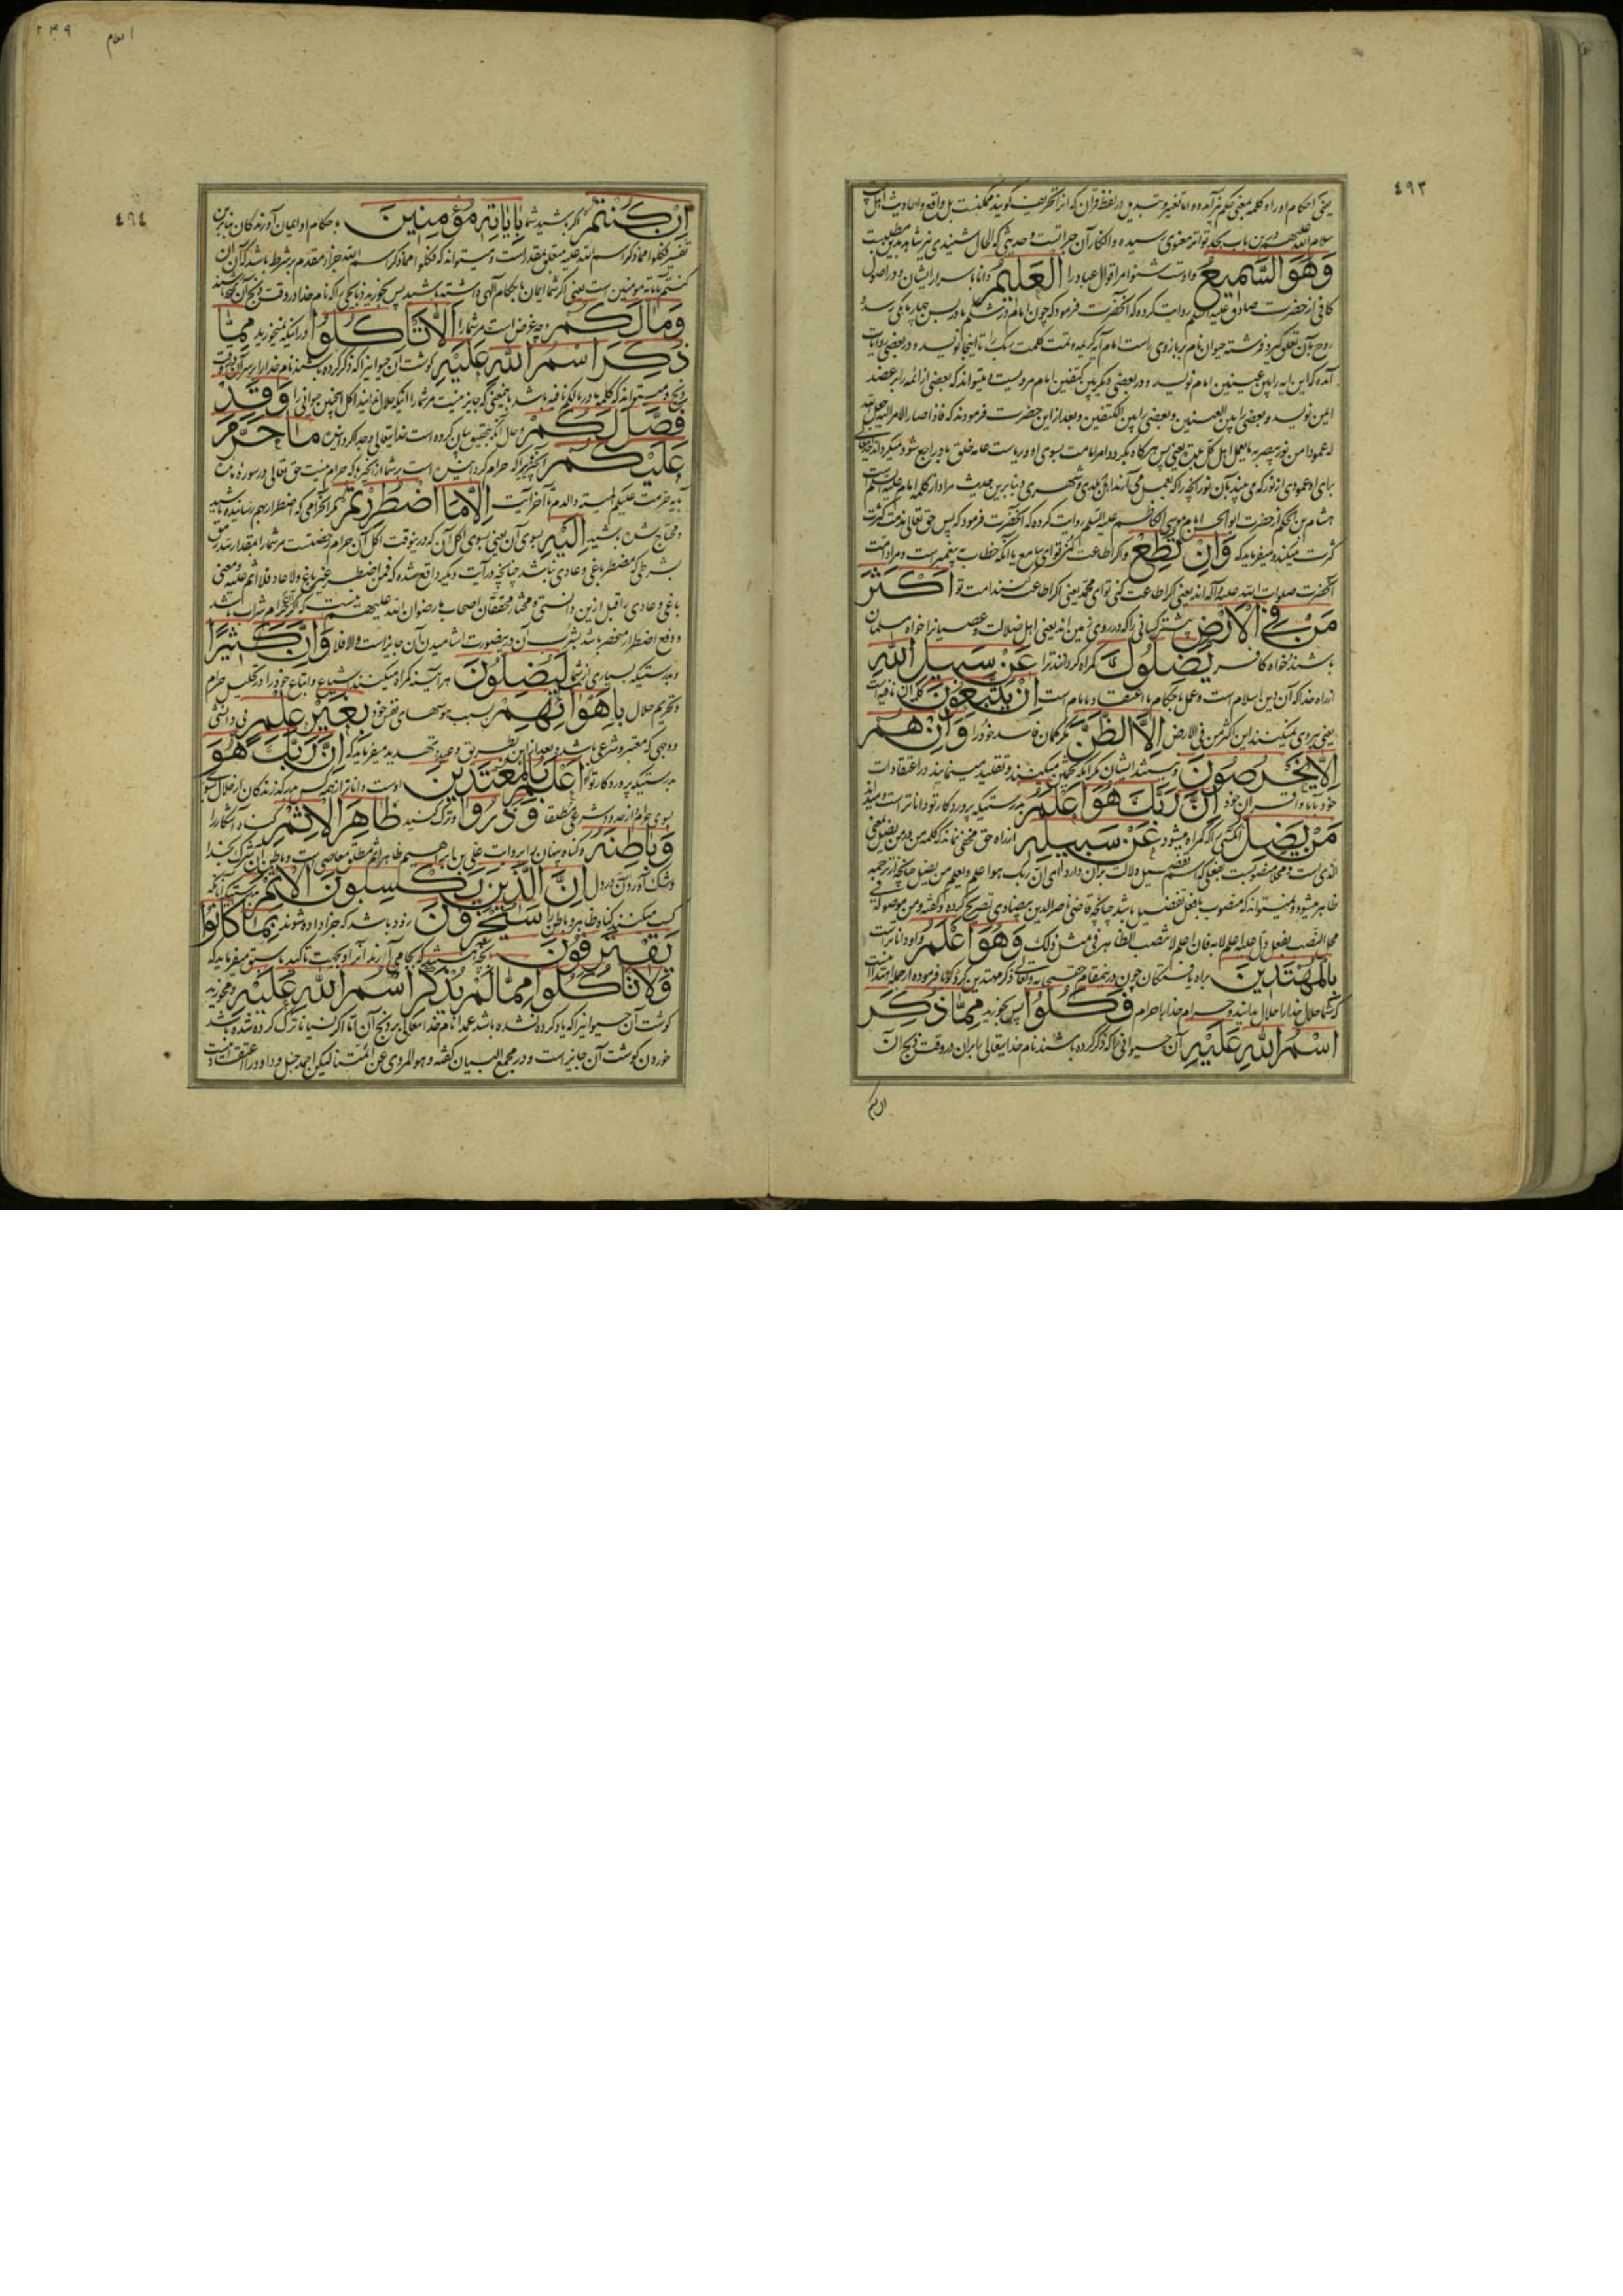 ٤٩٣
یعنی احکام او را و کلمه بمعنی حکم آمده و اما تغییر و تبدیل در لفظ قرآن که از آن تحریف گویند ممکنست بل واقع و احادیث اهل بیت
سلام الله علیهم درین باب بحد تواتر معنوی رسیده و انکار آن جرأتست و حدیثی که الحال شنیدی نیز شاهد این مطلبست
وَهُوَ السَّمِيعُ و اوست شنوا مر اقوال عباد را الْعَلِيمُ و دانا باسرار ایشان و در اصول
کافی از حضرت صادق علیه السلم روایت کرده که آنحضرت فرمود که چون امام در شکم مادر بسن چهار ماهگی رسد و
روح بآن تعلق گیرد فرشته حیوان نام بر بازوی راست امام آیه کریمه و تمت کلمت ربک را تا اینجا نویسد و در بعضی روایات
آمده که این آیه را بین عینین امام نویسد و در بعضی دیگر بین کتفین امام مرویست و میتواند که بعضی از ائمه را بر عضد
ایمن نویسد و بعضی را بین العینین و بعضی را بین الکتفین و بعد از این حضرت فرمودند که فاذا صار الامر الیه جعل الله
له عمودا من نور یبصر به ما یعمل اهل کل بلدة یعنی پس هرگاه بگردد امر امامت بسوی او و ریاست عامه خلق باو راجع شود میگرداند خدایتعالی
برای او عمودی از نور که می بیند بآن نور آنچه را که بعمل می آرند اهل هر بلدی و شهری و بنابرین حدیث مراد از کلمه امام علیه السلم است
هشام بن الحکم از حضرت ابو الحسن امام موسی الکاظم علیه السلم روایت کرده که آنحضرت فرمود که پس حق تعالی مذمت کثرت
کثرت میکند و میفرماید که وَاِنْ تُطِعْ و اگر اطاعت کنی تو ای سامع یا آنکه خطاب به پیغمبر است و مراد امت
آنحضرت صلوات الله علیه و آله اند یعنی اگر اطاعت کنی تو ای محمد یعنی اگر اطاعت کنند امت تو اَكْثَرَ
مَنْ فِي الْاَرْضِ بیشتر کسانی را که در روی زمین اند یعنی اهل ضلالت و عصیانرا خواه مسلمان
باشند و خواه کافر يُضِلُّوكَ گمراه گردانند ترا عَنْ سَبِيلِ اللهِ
از راه خدا که آن دین اسلام است و عمل باحکام با اعتقاد بامام است اِنْ يَتَّبِعُونَ کلمه ان نافیه است
یعنی پیروی نمیکنند این اکثر من فی الارض اِلَّا الظَّنَّ مگر گمان فاسد خود را وَاِنْ هُمْ
اِلَّا يَخْرُصُونَ و نیستند ایشان مگر آنکه تخمین میکنند و تقلید مینمایند در اعتقادات
خود بآبا و اقران خود اِنَّ رَبَّكَ هُوَ اَعْلَمُ بدرستیکه پروردگار تو او داناتر است و میداند
مَنْ يَضِلُّ آنکسی را که گمراه میشود عَنْ سَبِيلِهِ از راه حق مخفی نماند که کلمه من در من یضل بمعنی
الذی است و محلا منصوبست بفعلی که اسم تفضیل دلالت بر آن دارد ای ان ربک هو اعلم و یعلم من یضل چنانچه از ترجمه
ظاهر میشود و نمیتواند که منصوب بافعل تفضیل باشد چنانچه قاضی ناصر الدین بیضاوی تصریح کرده و گفته و من موصولة فی
محل النصب بفعل دل علیه اعلم لا به فان افعل لا ینصب الظاهر فی مثل ذلک وَهُوَ اَعْلَمُ و او داناتر است
بِالْمُهْتَدِينَ براه یافتگان چون در
که شما حلال خدا را حلال بدانید و حرام خدا را حرام فَكُلُوا پس بخورید مِمَّا ذُكِرَ
اسْمُ اللهِ عَلَيْهِ آن حیوانی را که ذکر کرده باشند نام خدایتعالی را بر آن در وقت ذبح آن
٢٤٩
٤٩٤
اِنْ كُنْتُمْ اگر باشید شما بِاٰيَاتِهِ مُؤْمِنِينَ باحکام او ایمان آورندگان بنابرین
تفسیر فکلوا مما ذکر اسم الله علیه متعلق مقدر است و میتواند که فکلوا مما ذکر اسم الله جزاء مقدم بر شرط باشد که آن ان
کنتم بآیاته مومنین است یعنی اگر شما ایمان باحکام آلهی داشته باشید پس بخورید ذبایحی را که نام خدا در وقت ذبح آن گفته باشند
وَمَا لَكُمْ و چه غرض است مر شما را اَلَّا تَاْكُلُوا در اینکه نمیخورید مِمَّا
ذُكِرَ اسْمُ اللهِ عَلَيْهِ گوشت آن حیوانیرا که ذکر کرده باشند نام خدا را بر سر آن در وقت
ذبح و میتواند که کلمه ما در ما لکم نافیه باشد باین معنی که جایز نیست مر شما را آنکه حلال ندانید اکل اینچنین حیوانی را وَقَدْ
فَصَّلَ لَكُمْ و حال آنکه بتحقیق بیان کرده است خدایتعالی و جدا کرده از این مَا حَرَّمَ
عَلَيْكُمْ آنچیزیرا که حرام گردانیده است بر شما از آنچیزها که حرام نیست حق تعالی در سوره مائده
بآیه حرمت علیکم المیتة و الدم تا آخر آیت اِلَّا مَا اضْطُرِرْتُمْ مگر آنحرامی که اضطرار بهم رسانیده باشید
و محتاج شده باشید اِلَيْهِ بسوی آن یعنی بسوی اکل آن که درینوقت اکل آن حرام رخصتست مر شما را بمقدار سد رمق
بشرطی که مضطر باغی و عادی نباشد چنانچه در آیت دیگر واقع شده که فمن اضطر غیر باغ و لا عاد فلا اثم علیه و معنی
باغی و عادی را قبل ازین دانستی و مختار محققان اصحاب ما رضوان الله علیهم اینست که اگر حرام شراب باشد
و دفع اضطرار منحصر باشد بشرب آن درینصورت آشامیدن آن جایز است و الا فلا وَاِنَّ كَثِيرًا
و بدرستیکه بسیاری از شما لَيُضِلُّونَ هر آینه گمراه میکنند اشیاع و اتباع خود را در تحلیل حرام
و تحریم حلال بِاَهْوَائِهِمْ بسبب هوسهای نفس خود بِغَيْرِ عِلْمٍ بی دانشی
و وجهی که معتبر و شرعی باشد و بعد از این بطریق وعید و تهدید میفرماید که اِنَّ رَبَّكَ هُوَ
بدرستیکه پروردگار تو اَعْلَمُ بِالْمُعْتَدِينَ اوست داناتر از همه کس بدرگذرندگان از حلال بسوی
بسوی حرام از حدود شرعی مطلقا وَذَرُوا و ترک کنید ظَاهِرَ الْاِثْمِ گناه آشکارا را
وَبَاطِنَهُ و گناه پنهان را بروایت علی بن ابراهیم ظاهر اثم مطلق معاصی است و باطن آن شرک بخدا
و شک آوردن در دل اِنَّ الَّذِينَ يَكْسِبُونَ الْاِثْمَ بدرستیکه آنانکه
کسب میکنند گناه ظاهر و باطن را سَيُجْزَوْنَ زود باشد که جزا داده شوند بِمَا كَانُوا
يَقْتَرِفُونَ بآنچه باشند که بجا می آرند آنرا و بجهت تاکید ما سبق میفرماید که
وَلَا تَاْكُلُوا مِمَّا لَمْ يُذْكَرِ اسْمُ اللهِ عَلَيْهِ و مخورید
گوشت آن حیوانیرا که یاد کرده نشده باشد عمدا نام خدایتعالی بر ذبح آن اما اگر نسیانا ترک کرده شده باشد
خوردن گوشت آن جایز است و در مجمع البیان گفته و هو المروی عن ائمتنا لیکن احمد حنبل و داود را اعتقاد اینست